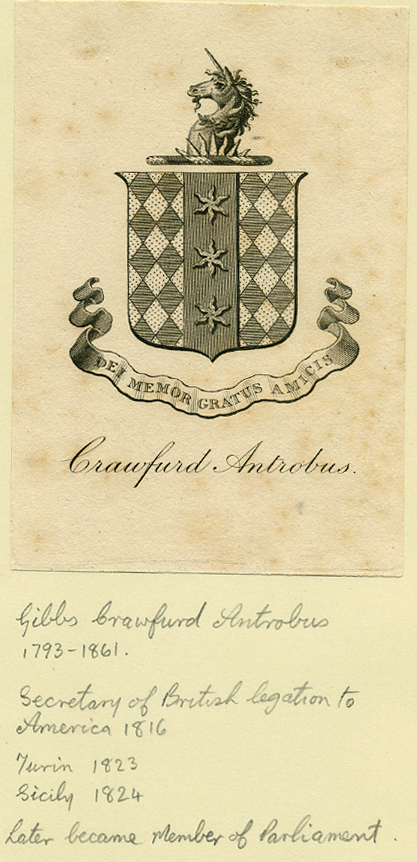 DEI MEMOR GRATUS AMICIS
Crawfurd Antrobus.
Gibbs Crawfurd Antrobus
1793-1861.
Secretary of British legation to
America 1816
Turin 1823
Sicily 1824
Later became Member of Parliament.